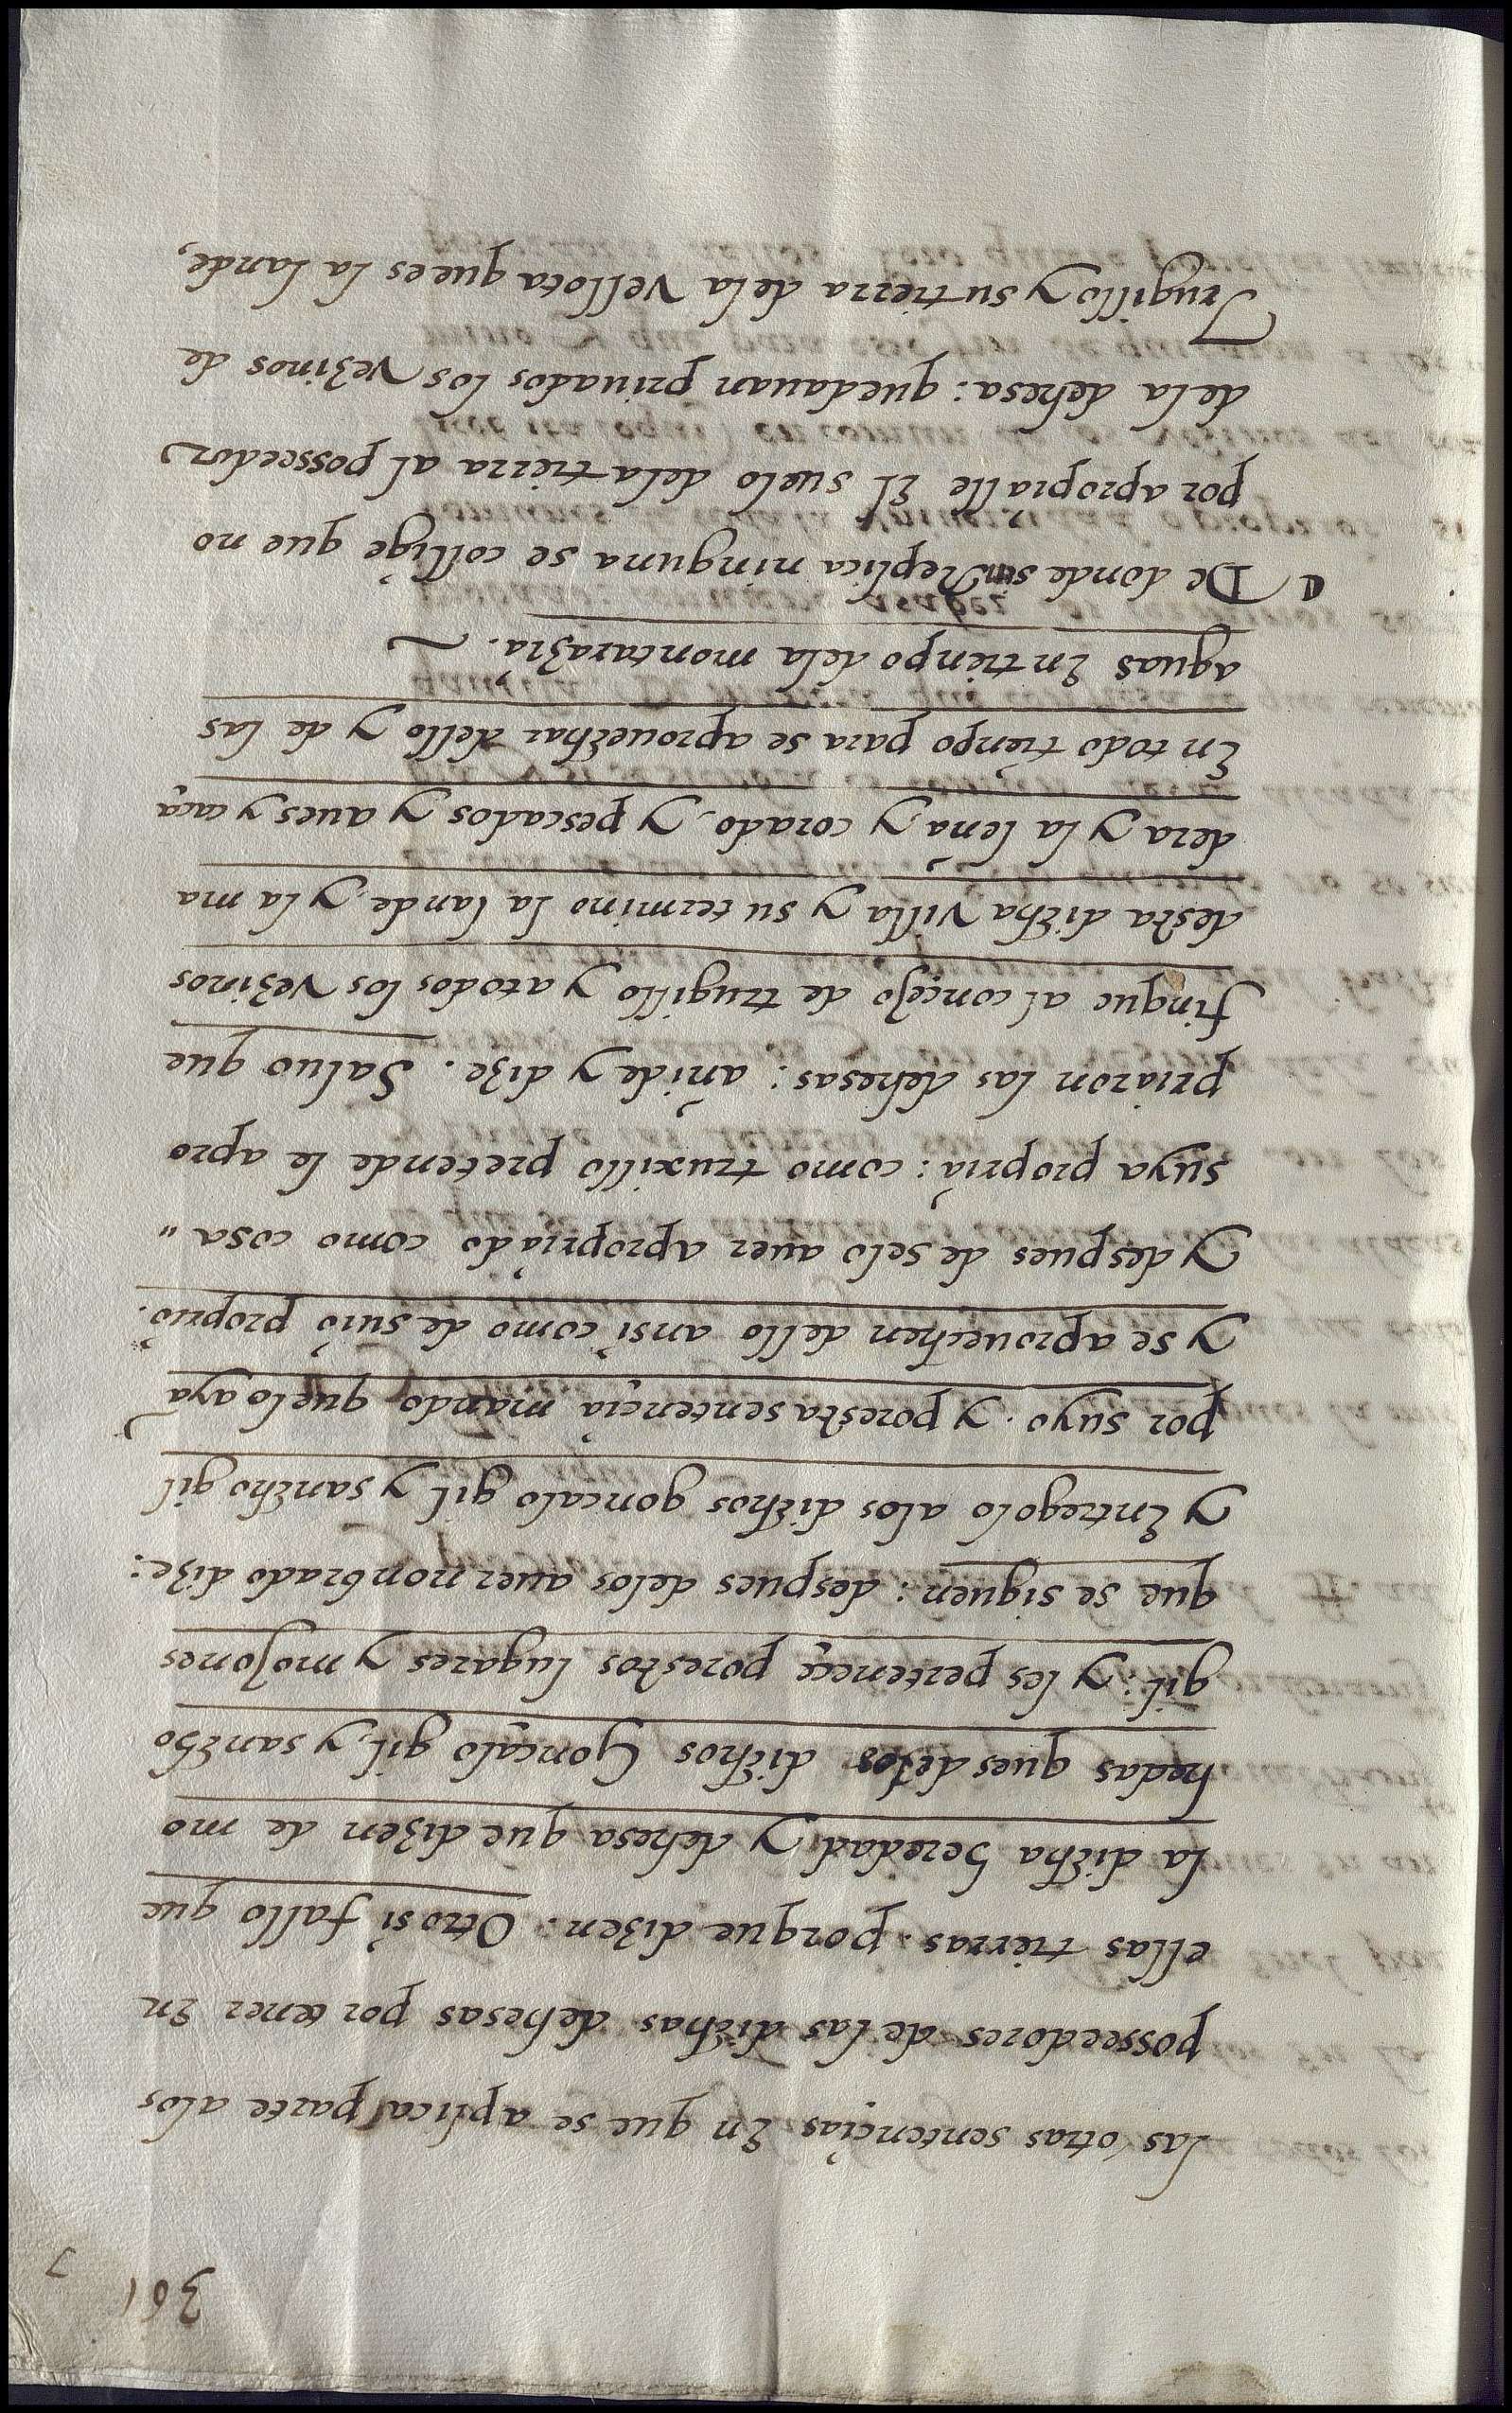 361
las otras sentençias En que se aplica parte alos
posseedores de las dichas dehesas por tener En
ellas tierras. porque dizen: Otrosi fallo que
la dicha heredad y dehesa que dizen de mo
hedas ques delos dichos Gonçalo gil, y sancho
gil: y les perteneçe porestos lugares y mojones
que se siguen: despues delos auer nonbrado dize:
y Entregolo alos dichos gonçalo gil y sancho gil
por suyo. y poresta sentençia mando quelo aya
y se aprouechen dello ansi como de suio proprio.
y despues de selo auer apropriado como cosa "
suya propria: como truxillo pretende le apro
priaron las dehesas: añide y dize. Saluo que
finque al conçejo de trugillo y atodos los vezinos
desta dicha villa y su termino la lande, y la ma
dera y la leña, y corado. y pescados y aues y caça
En todo tienpo para se aprouechar dello y de las
aguas En tienpo dela montarazia. ~
De donde sin Replica ninguna se collige que no
por aproprialle El suelo dela tierra al posseedor
dela dehesa: quedauan priuados los vezinos de
Trugillo y su tierra dela vellota que es la lande,